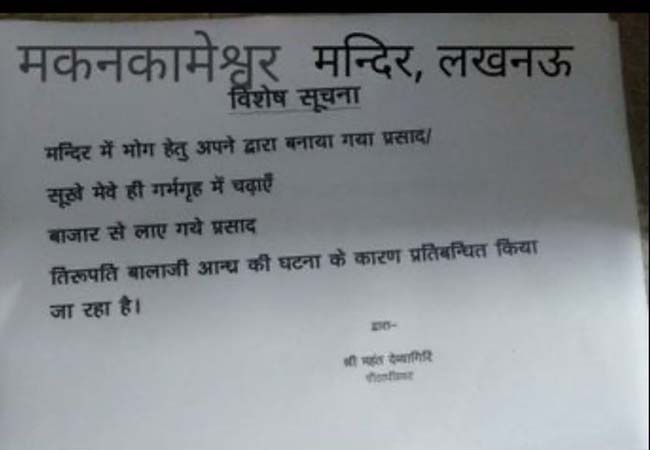 मकनकामेश्वर मन्दिर, लखनऊ
विशेष सूचना
मन्दिर में भोग हेतु अपने द्वारा बनाया गया प्रसाद/
सूखे मेवे ही गर्भगृह में चढ़ाएँ
बाजार से लाए गये प्रसाद
तिरूपति बालाजी आन्ध्र की घटना के कारण प्रतिबन्धित किया
जा रहा है।
द्वारा–
श्री महंत देव्यागिरि